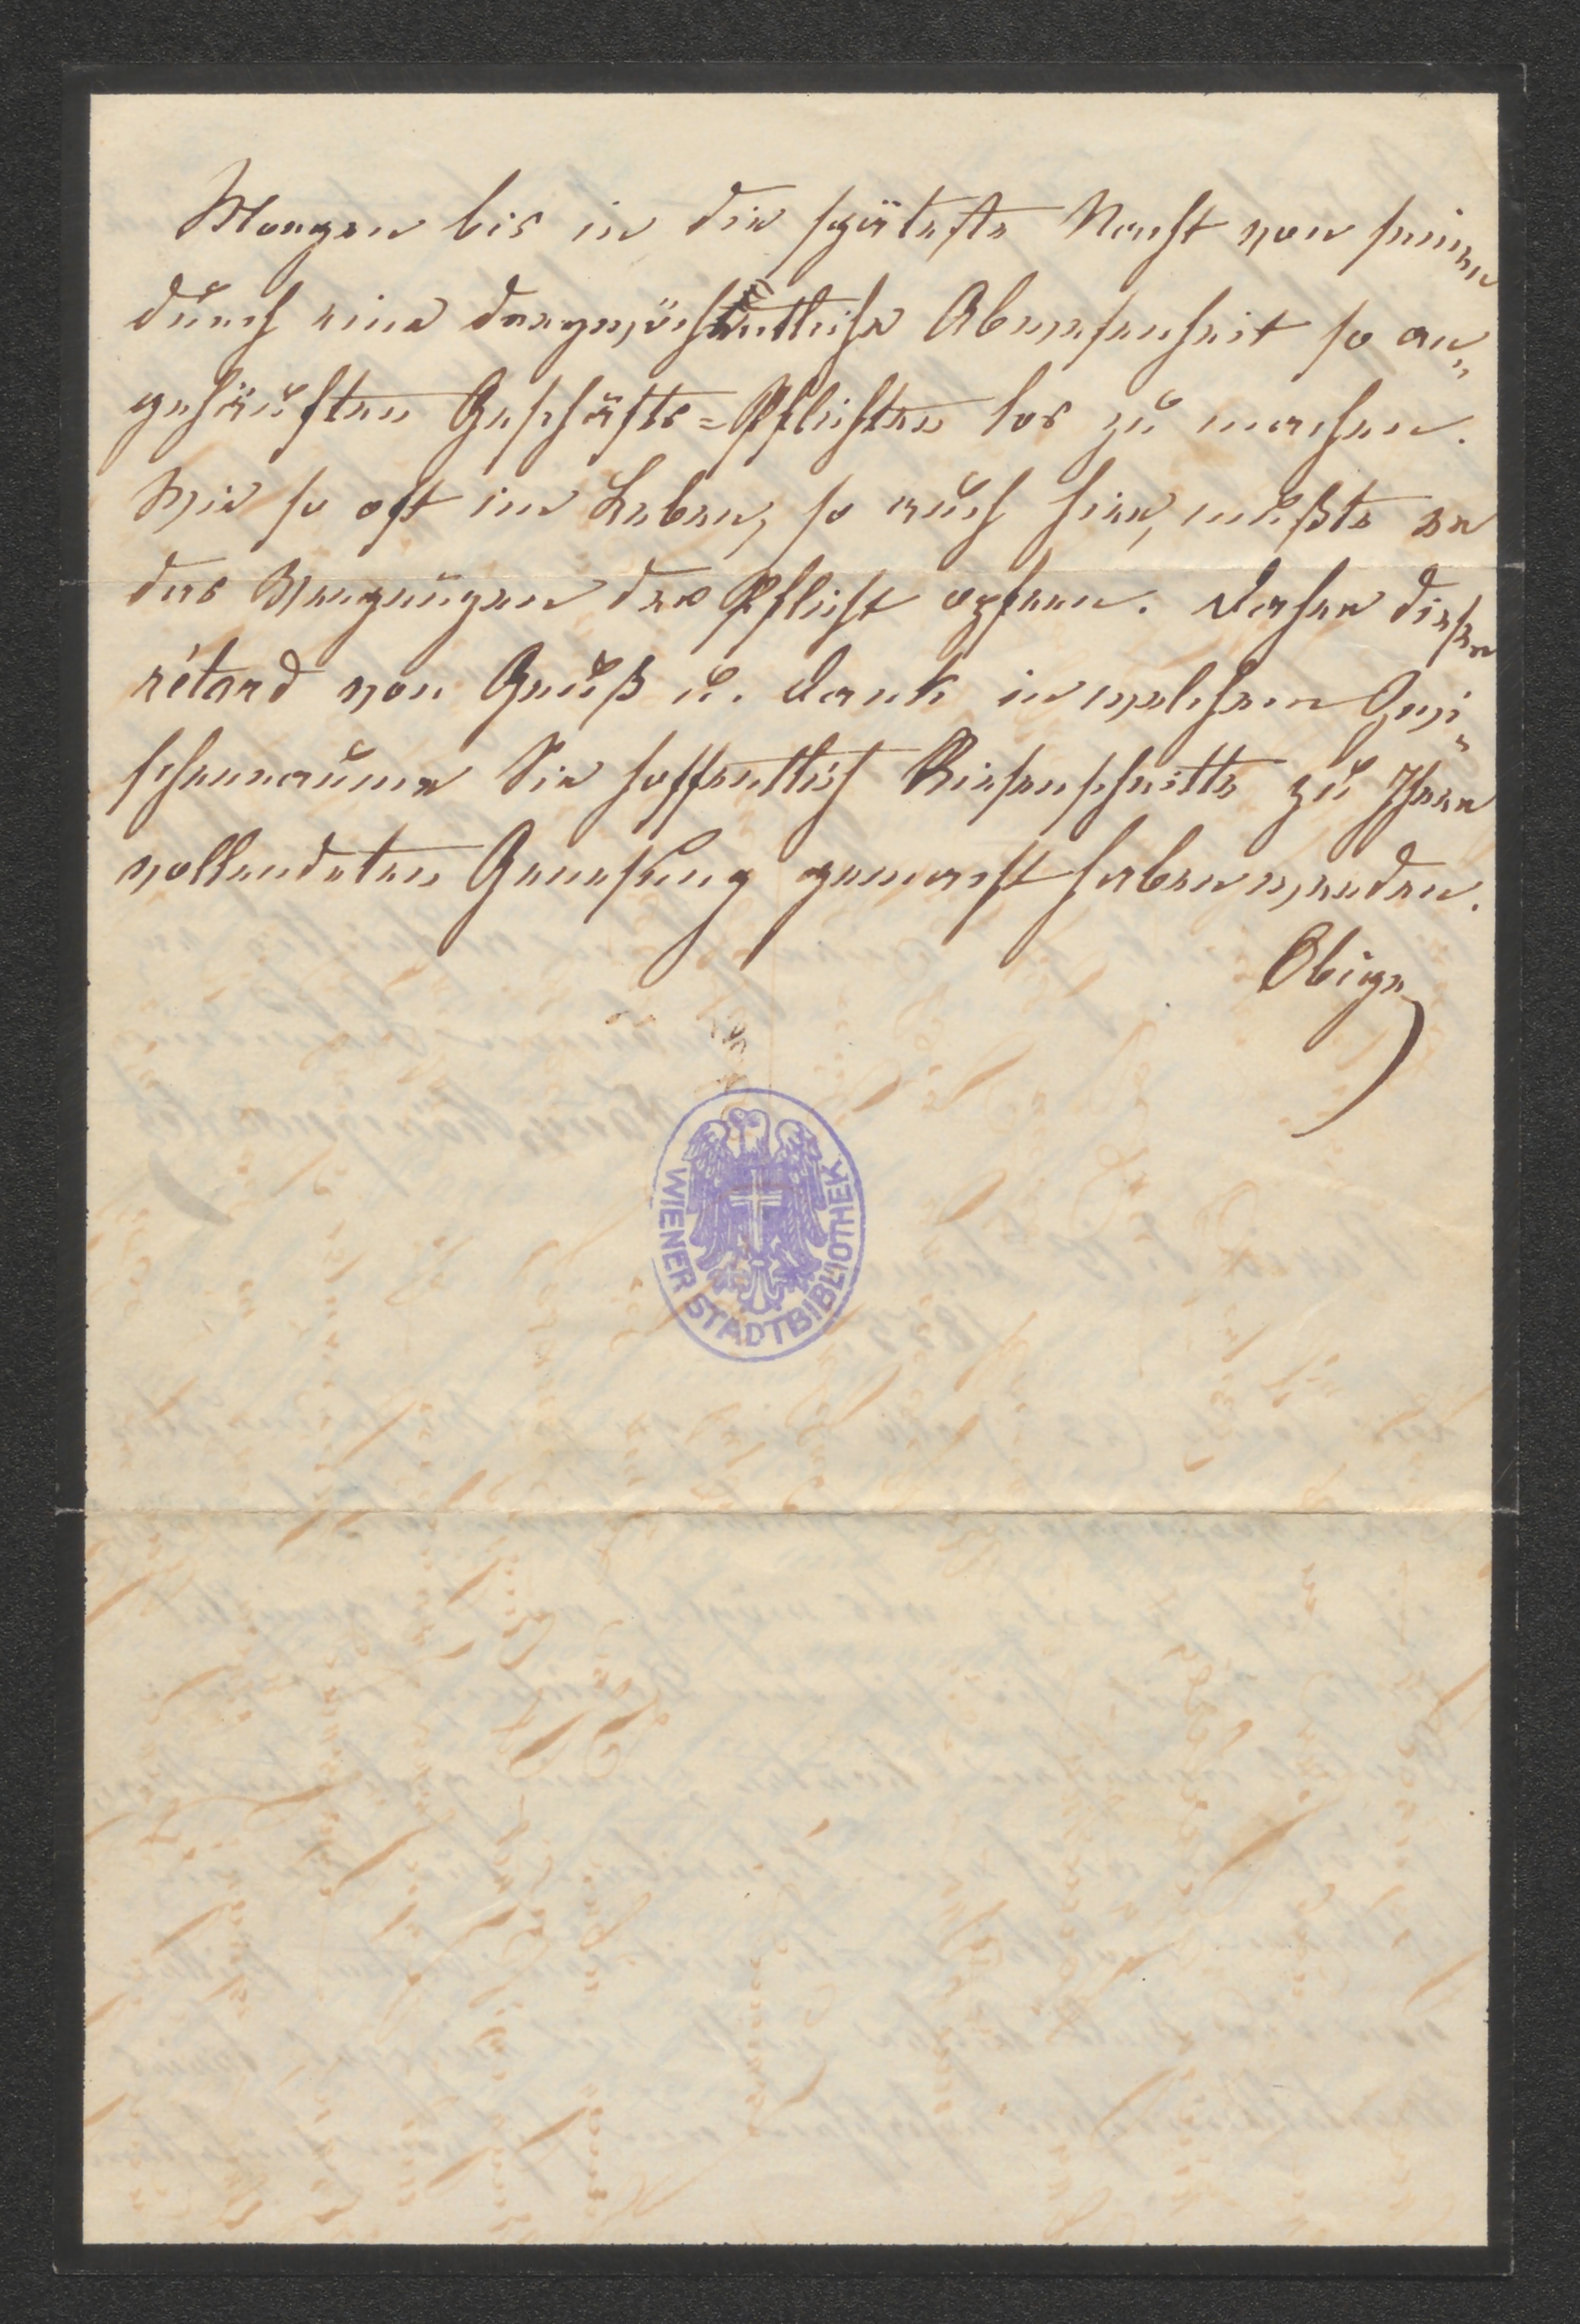 Morgen bis in die späteste Nacht von seinen
durch eine dreywöchentliche Abwesenheit so an„
gehäuften Geschäfts=Pflichten los zu machen.
Wie so oft im Leben, so auch hier, mußte er
das Vergnügen der Pflicht opfern. Daher dieser
rétard von Gruß u. Dank in welchem Zwi„
schenraume Sie hoffentlich Riesenschritte zu Ihrer
vollendeten Genesung gemacht haben werden.
Obige
WIENER STADTBIBLIOTHEK